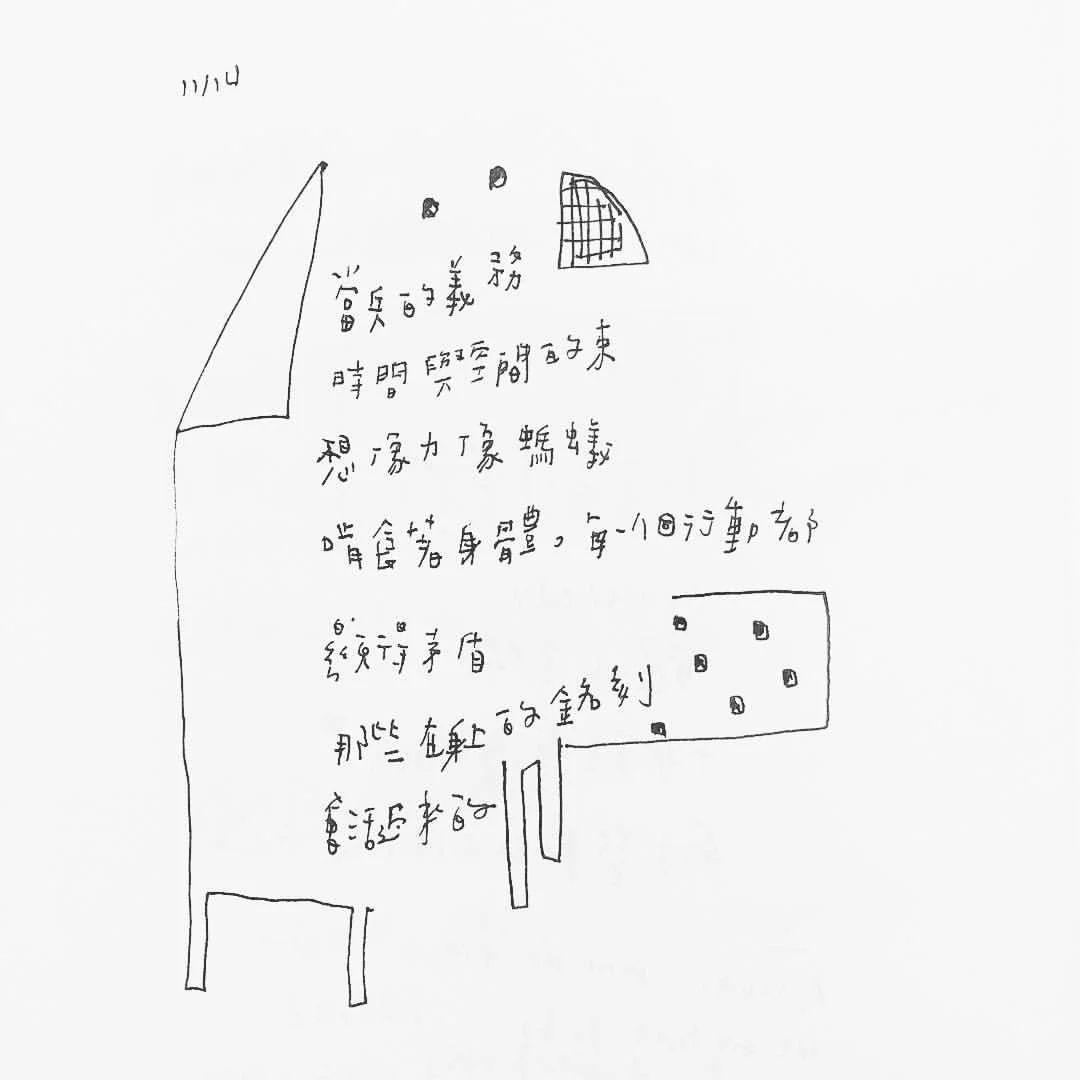 11/14
當兵的義務
時間與空間的束
想像力像螞蟻
啃食著身體，每一個行動都
變得矛盾
那些在身上的銘刻
會活過來的